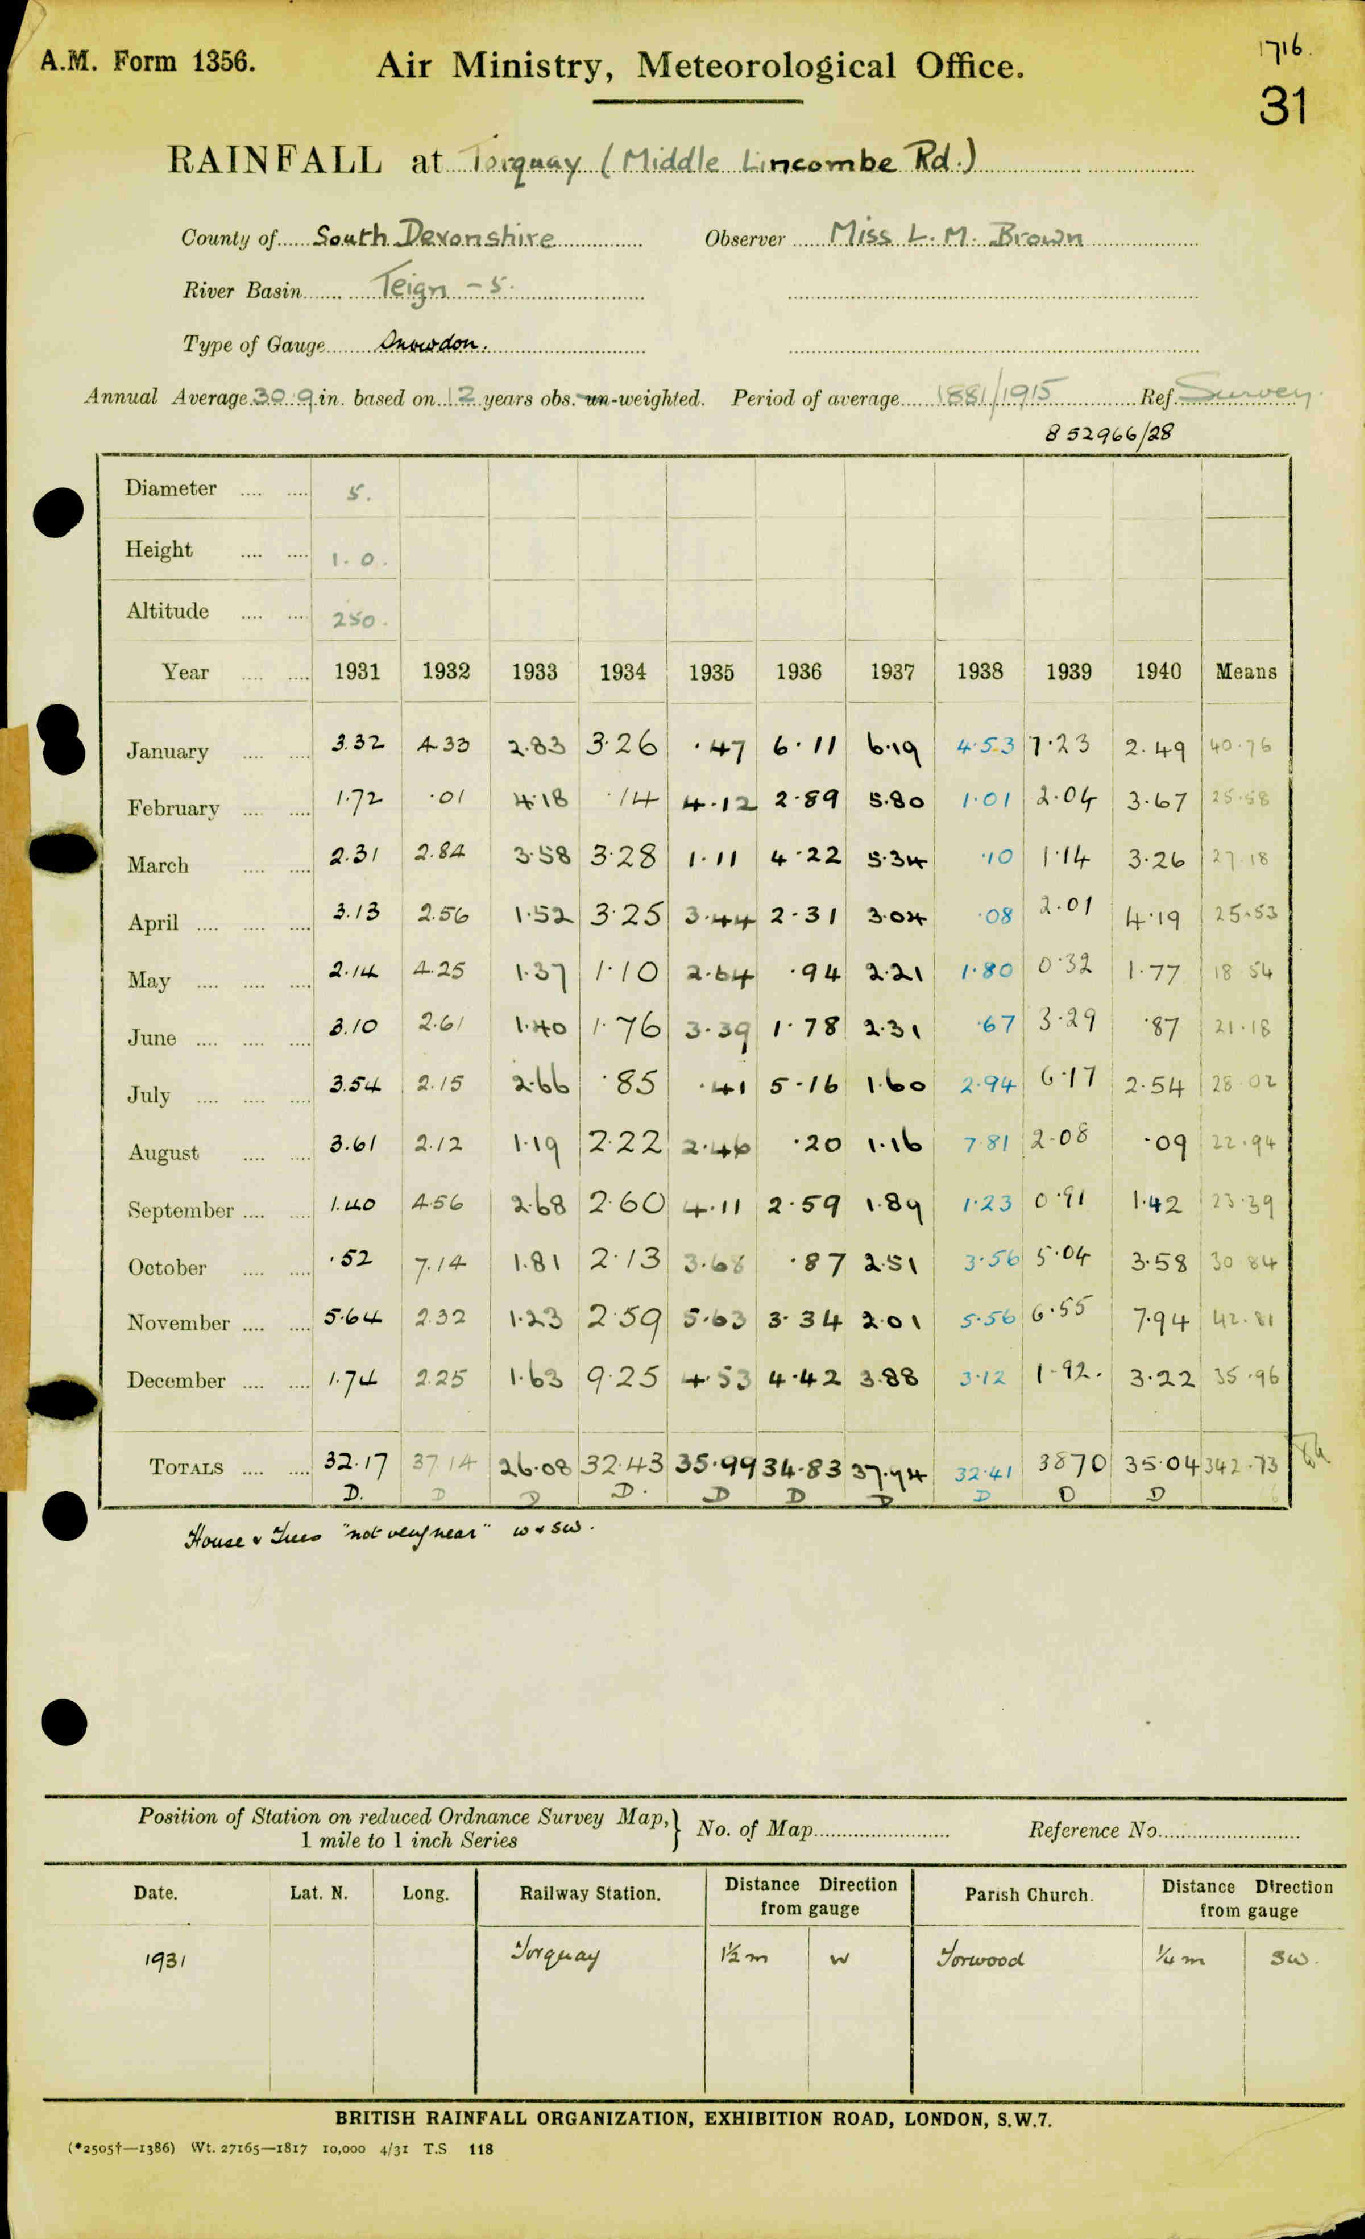 A.M. Form 1356.
Air Ministry, Meteorological Office.
1716.
31
RAINFALL at Torquay (Middle Lincombe Rd.)
County of South Devonshire Observer Miss L. M. Brown
River Basin Teign - 5.
Type of Gauge Snowdon.
Annual Average 30.9 in. based on 12 years obs. un-weighted. Period of average 1881/1915 Ref. Survey.
852966/28
Diameter 5.
Height 1.0.
Altitude 250.
Year 1931 1932 1933 1934 1935 1936 1937 1938 1939 1940 Means
January 3.32 4.33 2.83 3.26 .47 6.11 6.19 4.53 7.23 2.49 40.76
February 1.72 .01 4.18 .14 4.12 2.89 5.80 1.01 2.04 3.67 25.58
March 2.31 2.84 3.58 3.28 1.11 4.22 5.34 .10 1.14 3.26 27.18
April 3.13 2.56 1.52 3.25 3.44 2.31 3.04 .08 2.01 4.19 25.53
May 2.14 4.25 1.37 1.10 2.64 .94 2.21 1.80 0.32 1.77 18 54
June 3.10 2.61 1.40 1.76 3.39 1.78 2.31 .67 3.29 .87 21.18
July 3.54 2.15 2.66 .85 .41 5.16 1.60 2.94 6.17 2.54 28 02
August 3.61 2.12 1.19 2.22 2.46 .20 1.16 7.81 2.08 .09 22.94
September 1.40 4.56 2.68 2.60 4.11 2.59 1.89 1.23 0.91 1.42 23.39
October .52 7.14 1.81 2.13 3.68 .87 2.51 3.56 5.04 3.58 30 84
November 5.64 2.32 1.23 2.59 5.63 3.34 2.01 5.56 6.55 7.94 42.81
December 1.74 2.25 1.63 9.25 4.53 4.42 3.88 3.12 1.92. 3.22 35.96
TOTALS 32.17 37 14 26.08 32.43 35.99 34.83 37.94 32.41 3870 35.04 342.73
D. D D D. D D D D D D
House & Trees "not very near" W & SW.
Position of Station on reduced Ordnance Survey Map,} No. of Map Reference No.
1 mile to 1 inch Series
Date. Lat. N. Long. Railway Station. Distance Direction from gauge Parish Church. Distance Direction from gauge
1931 Torquay 1½ m W Torwood ¼ m SW.
BRITISH RAINFALL ORGANIZATION, EXHIBITION ROAD, LONDON, S.W.7.
(*2505†—1386) Wt. 27165—1817 10,000 4/31 T.S 118